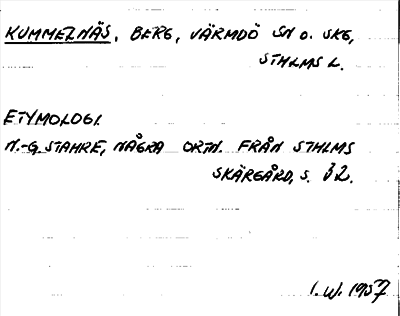 KUMMELNÄS, BERG, VÄRMDÖ SN O. SKG,
STHLMS L.
ETYMOLOGI.
N.-G. STAHRE, NÅGRA ORTN. FRÅN STHLMS
SKÄRGÅRD, S. 32.
I. W. 1957